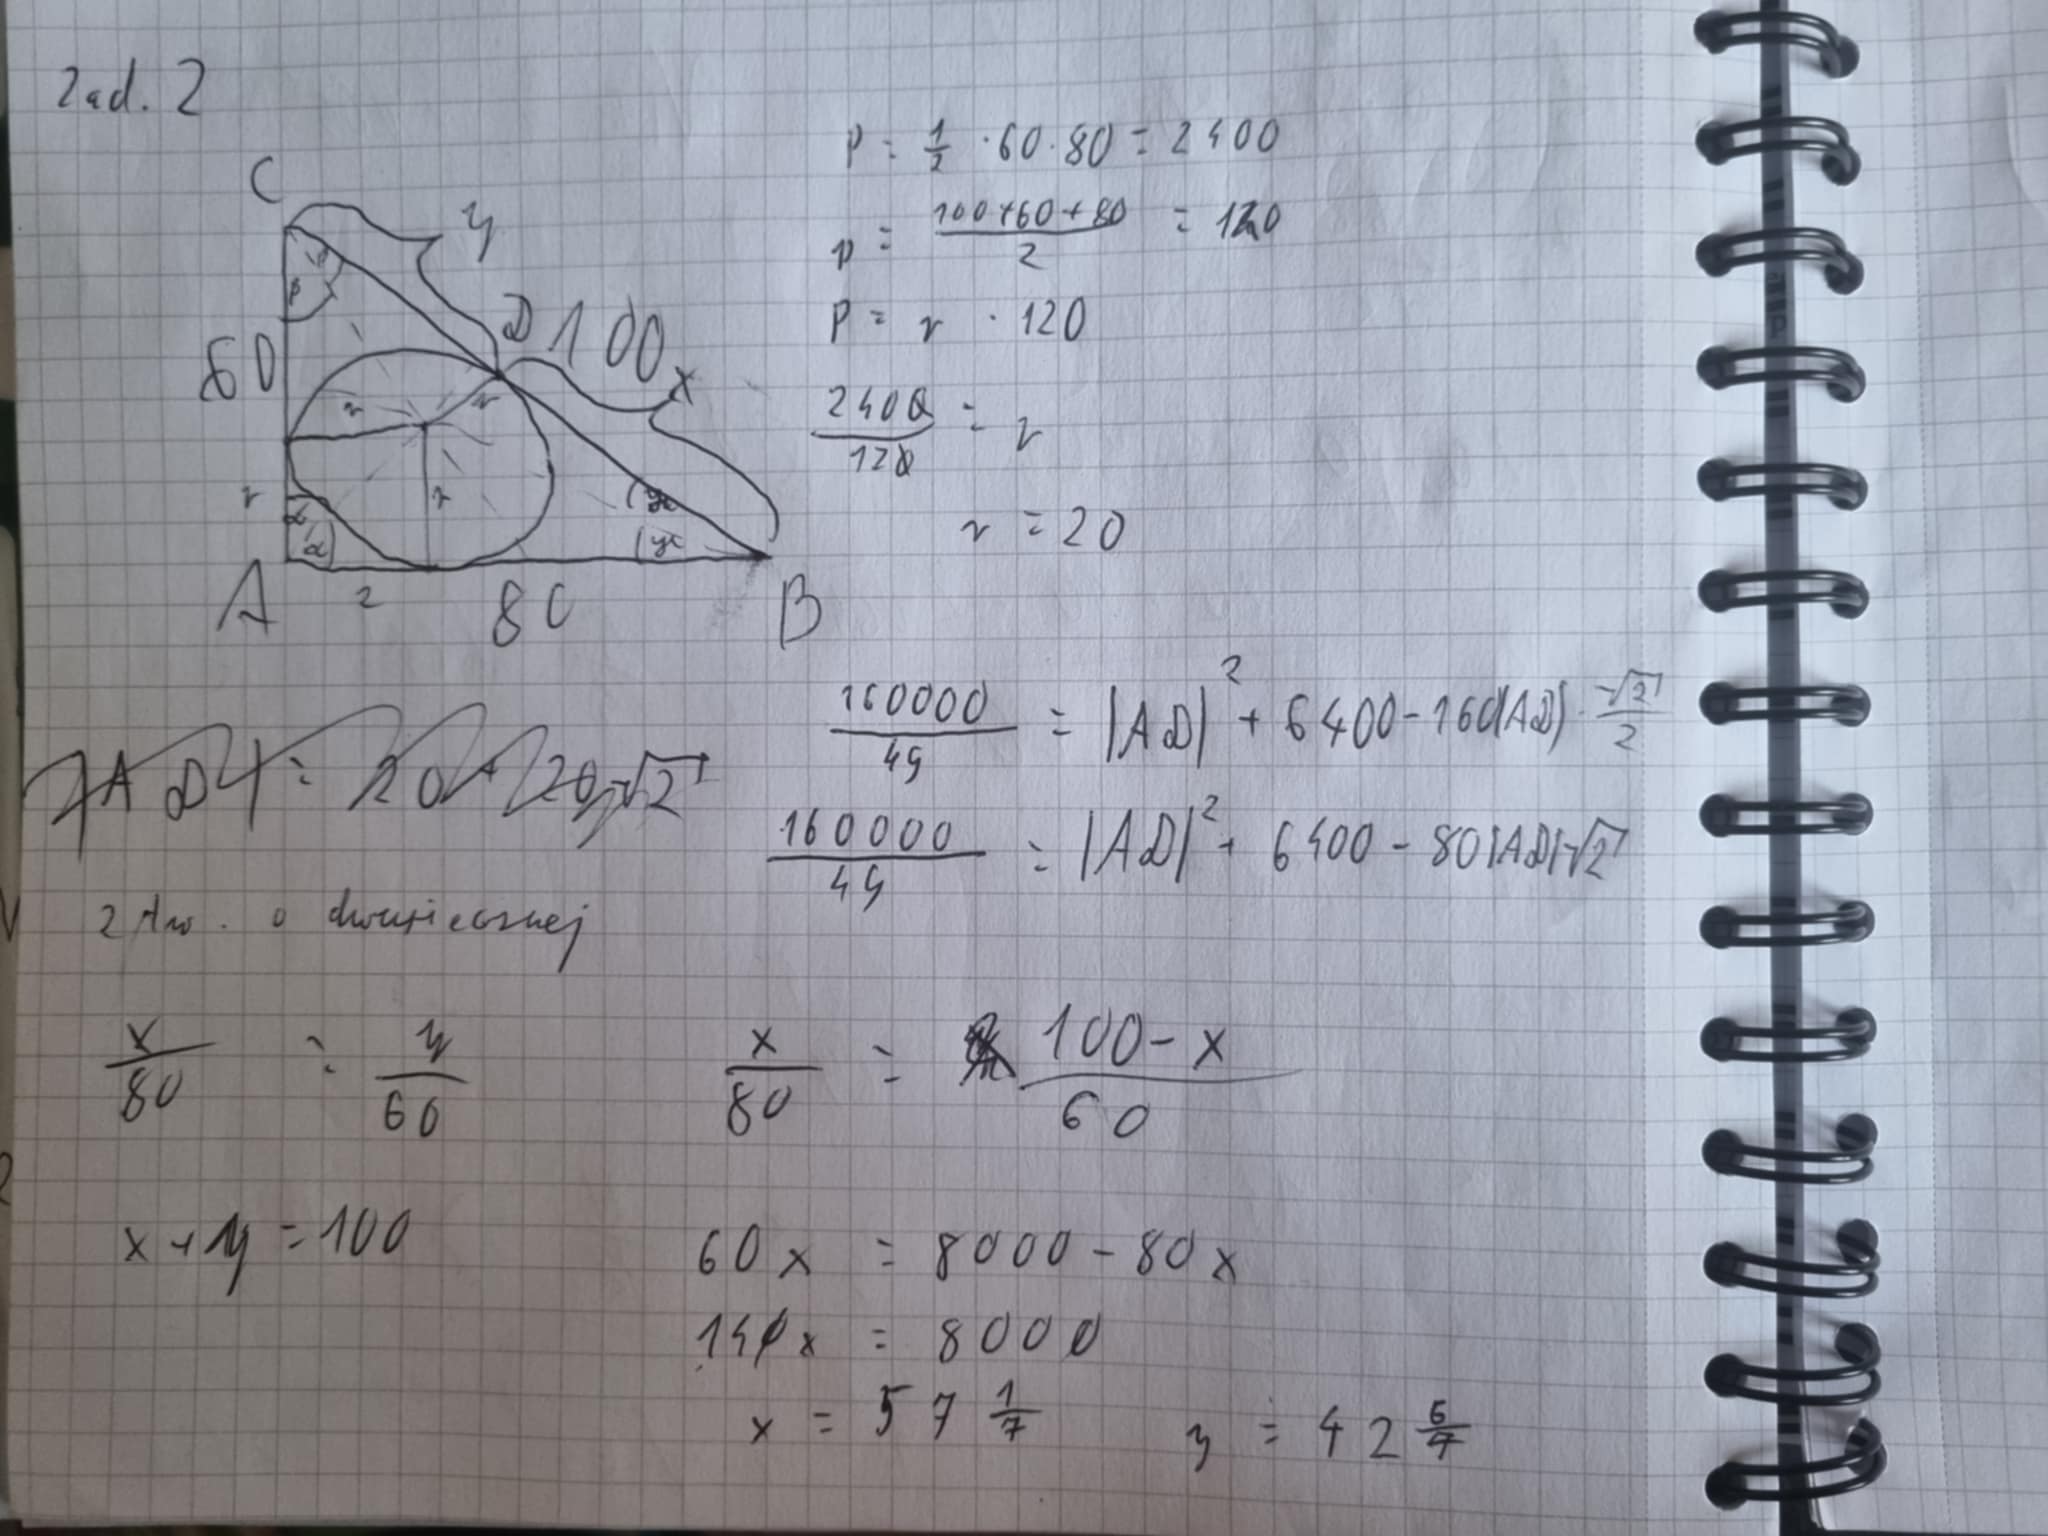 Zad. 2
C
y
D 100 x
60
β
β
r
r
r
r
α
α
γ
γ
A
r
80
B
P = 1/2 · 60 · 80 = 2400
p = (100+60+80)/2 = 120
P = r · 120
2400/120 = r
r = 20
|AD| = 20 + 20√2
160000/49 = |AD|² + 6400 - 160|AD| · √2/2
160000/49 = |AD|² + 6400 - 80|AD|√2
z tw. o dwusiecznej
x/80 = y/60
x + y = 100
x/80 = (100-x)/60
60x = 8000 - 80x
140x = 8000
x = 57 1/7 y = 42 6/7